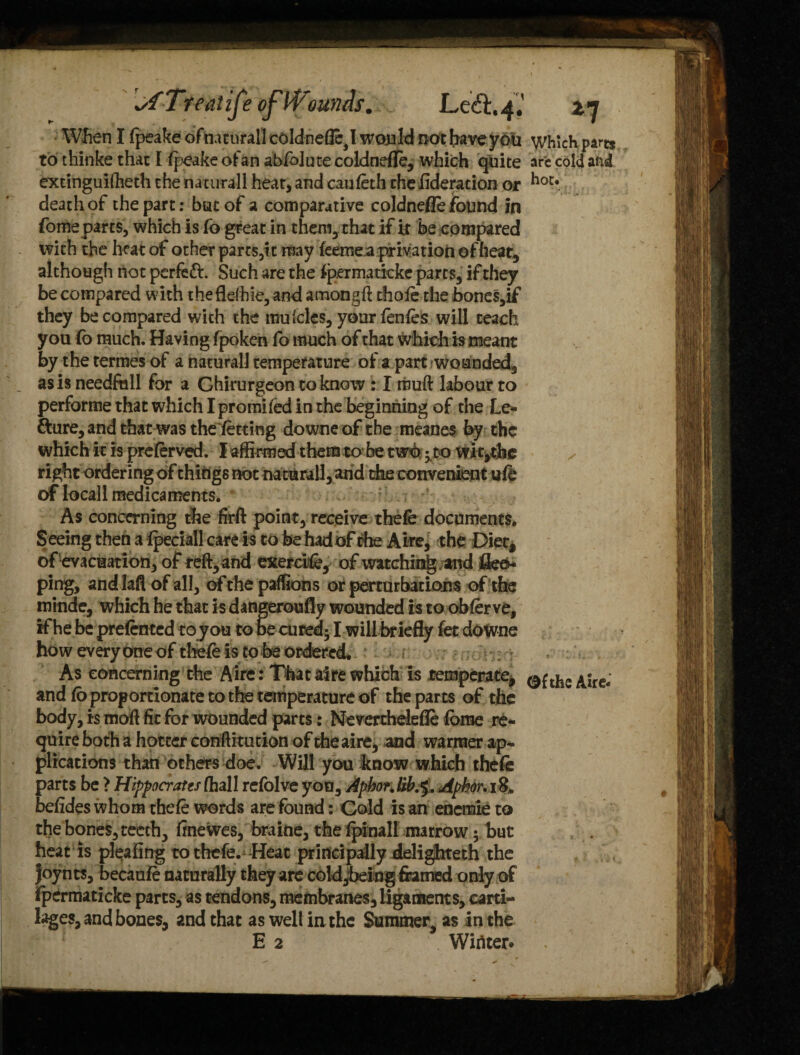 A Treatise of Wounds. Lect.4. 27
When I ſpeake of naturall coldneſſe, I would not have you
to thinke that I ſpeake of an abſolute coldneſſe, which quite
extinguiſheth the naturall heat, and cauſeth the ſideration or
death of the part: but of a comparative coldneſſe found in
ſome parts, which is ſo great in them, that if it be compared
with the heat of other parts, it may ſeeme a privation of heat,
although not perfect. Such are the ſpermaticke parts, if they
be compared with the fleſhie, and amongſt thoſe the bones, if
they be compared with the muſcles, your ſenſes will teach
you ſo much. Having ſpoken ſo much of that which is meant
by the termes of a naturall temperature of a part wounded,
as is needfull for a Chirurgeon to know: I muſt labour to
performe that which I promiſed in the beginning of the Le-
cture, and that was the ſetting downe of the meanes by the
which it is preſerved. I affirmed them to be two; to wit, the
right ordering of things not naturall, and the convenient uſe
of locall medicaments.
As concerning the firſt point, receive theſe documents.
Seeing then a ſpeciall care is to be had of the Aire, the Diet,
of evacuation, of reſt, and exerciſe, of watching and ſlee-
ping, and laſt of all, of the paſſions or perturbations of the
minde, which he that is dangerouſly wounded is to obſerve,
if he be preſented to you to be cured; I will briefly ſet downe
how every one of theſe is to be ordered.
As concerning the Aire: That aire which is temperate,
and ſo proportionate to the temperature of the parts of the
body, is moſt fit for wounded parts: Nevertheleſſe ſome re-
quire both a hotter conſtitution of the aire, and warmer ap-
plications than others doe. Will you know which theſe
parts be? Hippocrates ſhall reſolve you, Aphor. lib.5. Aphor. 18.
beſides whom theſe words are found: Cold is an enemie to
the bones, teeth, ſinewes, braine, the ſpinall marrow; but
heat is pleaſing to theſe. Heat principally delighteth the
joynts, becauſe naturally they are cold, being framed only of
ſpermaticke parts, as tendons, membranes, ligaments, carti-
lages, and bones, and that as well in the Summer, as in the
E 2 Winter.
Which parts
are cold and
hot.
Of the Aire.